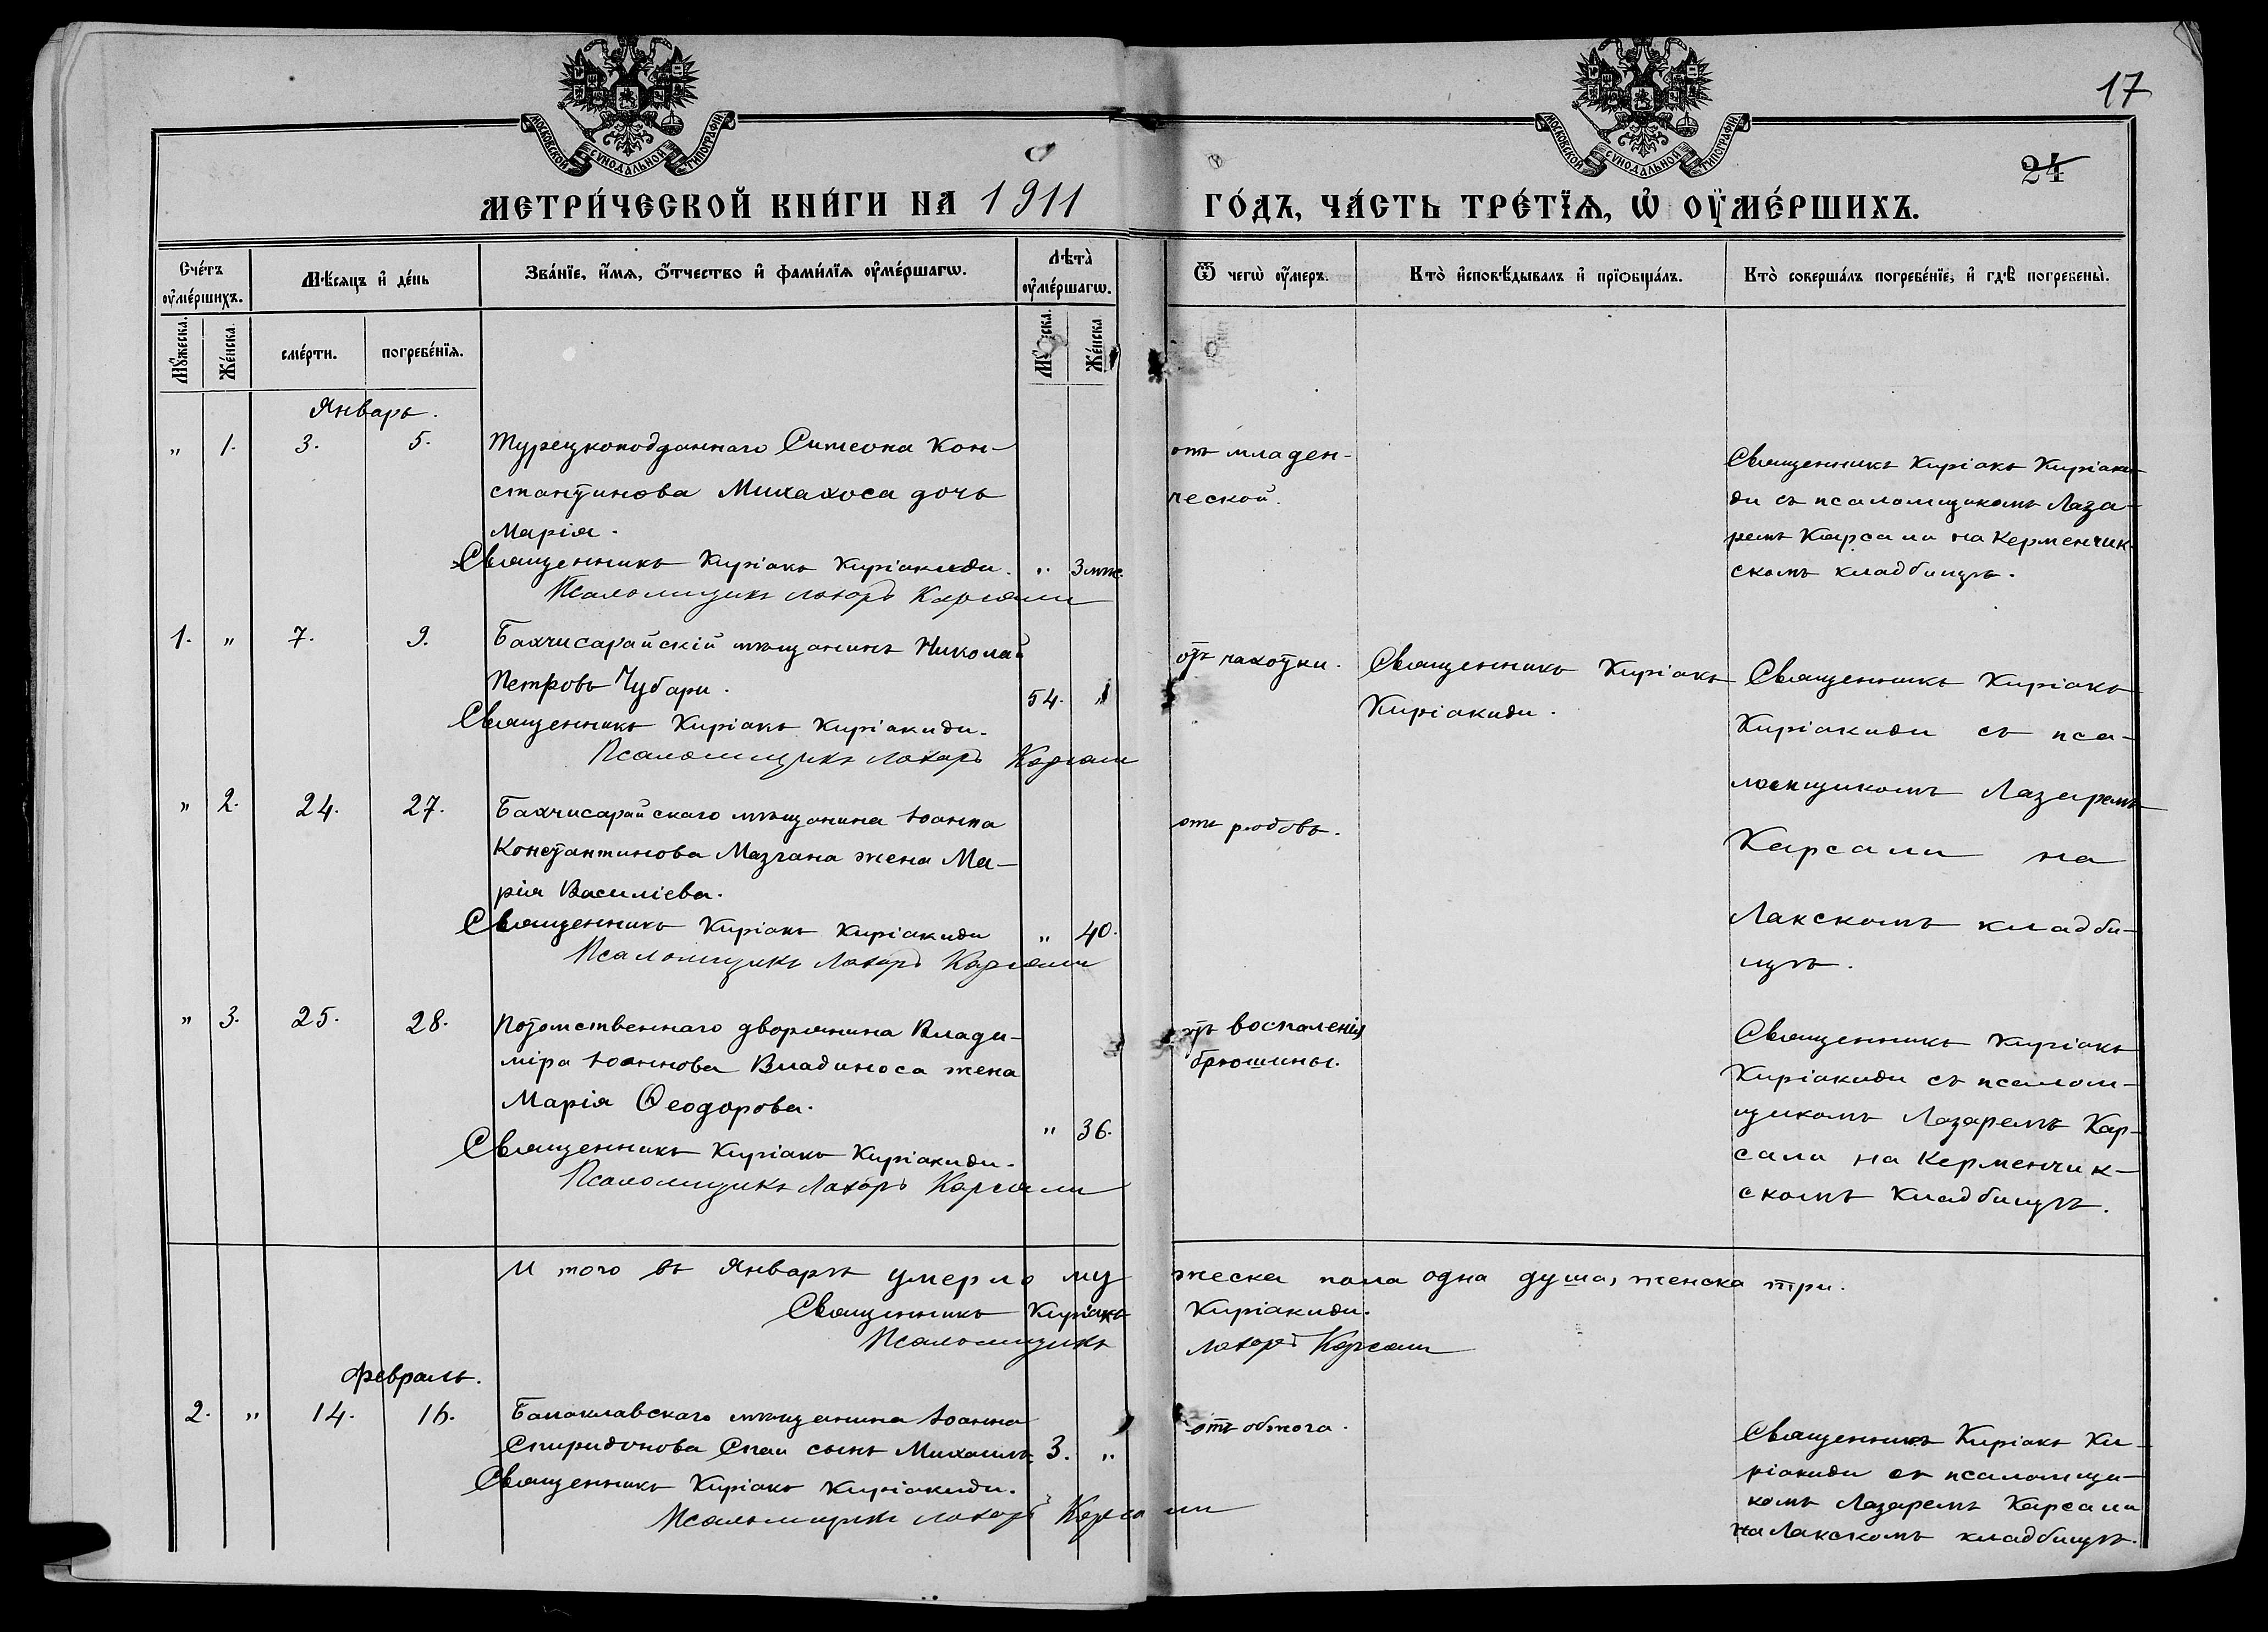 17
24
МОСКОВСКОЙ СѴНОДАЛЬНОЙ ТИПОГРАФІИ
МОСКОВСКОЙ СѴНОДАЛЬНОЙ ТИПОГРАФІИ
МЕТРИ́ЧЕСКОЙ КНИ́ГИ НА 1911 ГО́ДЪ, ЧА́СТЬ ТРЕ́ТЇѦ, Ѡ҆ ОУ҆МЕ́РШИХЪ.
Сче́тъ оу҆ме́ршихъ.
Мѣ́сяцъ и҆ де́нь
Зва́нїе, и҆́мѧ, ѻ҆́тчество и҆ фами́лїѧ оу҆ме́ршагѡ.
Лѣта̀ оу҆ме́ршагѡ.
Ѿ чегѡ̀ оу҆́меръ.
Кто̀ и҆сповѣ́дывалъ и҆ прїѡбща́лъ.
Кто̀ соверша́лъ погребе́нїе, и҆ гдѣ̀ погребены̀.
Мꙋ́жеска.
Же́нска.
сме́рти.
погребе́нїѧ.
Же́нска
Январь.
" 1. 3. 5.
Турецкоподданнаго Симеона Кон-
стантинова Михахоса дочь
Марія.
Священникъ Киріакъ Киріакиди. " 3 мѣс.
Псаломщикъ Лазарь Карсали
отъ младен-
ческой.
Священникъ Киріакъ Киріаки-
ди съ псаломщикомъ Лаза-
ремъ Карсали на Керменчик-
скомъ кладбищѣ.
1. " 7. 9.
Бахчисарайскій мѣщанинъ Николай
Петровъ Чубари. 54. "
Священникъ Киріакъ Киріакиди.
Псаломщикъ Лазарь Карсали
отъ чахотки.
Священникъ Киріакъ
Киріакиди.
Священникъ Киріакъ
Киріакиди съ пса-
ломщикомъ Лазаремъ
Карсали на
Лакскомъ кладби-
щѣ.
" 2. 24. 27.
Бахчисарайскаго мѣщанина Іоанна
Константинова Мазгана жена Ма-
рія Василіева.
Священникъ Киріакъ Киріакиди " 40.
Псаломщикъ Лазарь Карсали
отъ родовъ.
" 3. 25. 28.
Потомственнаго дворянина Влади-
міра Іоаннова Владиноса жена
Марія Ѳеодорова. " 36.
Священникъ Киріакъ Киріакиди.
Псаломщикъ Лазарь Карсали
отъ воспаленія
брюшины.
Священникъ Киріакъ
Киріакиди съ псалом-
щикомъ Лазаремъ Кар-
сали на Керменчик-
скомъ кладбищѣ.
И того въ Январѣ умерло мужеска пола одна душа, женска три.
Священникъ Киріакъ Киріакиди.
Псаломщикъ Лазарь Карсали
Февраль.
2. " 14. 16.
Балаклавскаго мѣщанина Іоанна
Спиридонова Спаи сынъ Михаилъ 3. "
Священникъ Киріакъ Киріакиди.
Псаломщикъ Лазарь Карсали
отъ обжога.
Священникъ Киріакъ Ки-
ріакиди съ псаломщи-
комъ Лазаремъ Карсали
на Лакскомъ кладбищѣ.